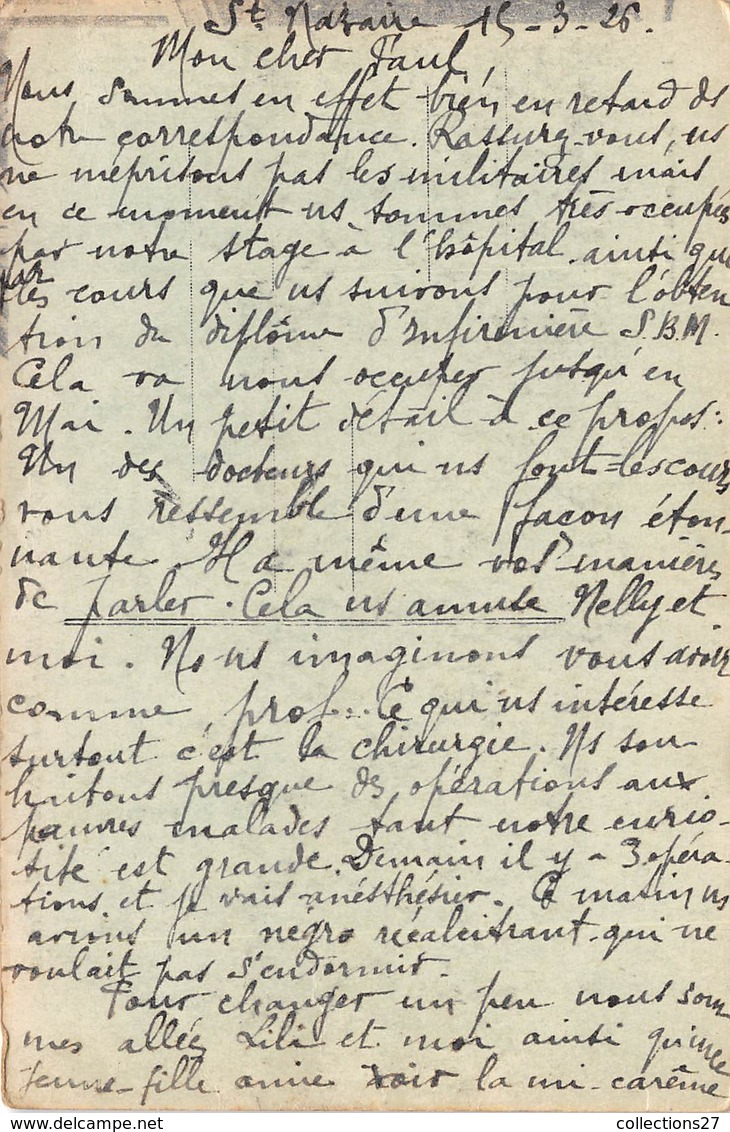 St Nazaire 15-3-26.
Mon cher Paul,
Nous sommes en effet bien en retard ds
notre correspondance. Rassurez-vous, ns
ne méprisons pas les militaires mais
en ce moment ns sommes très occupées
par notre stage à l'hôpital ainsi que
par les cours que ns suivons pour l'obten
tion du diplôme d'Infirmière S.B.M.
Cela va nous occuper jusqu'en
Mai. Un petit détail à ce propos:
Un des docteurs qui ns font les cours
vous ressemble d'une façon éton-
nante. Il a même vos manières
de parler. Cela ns amuse Nelly et
moi. Nous imaginons vous avoir
comme prof... Ce qui ns intéresse
surtout c'est la chirurgie. Ns sou-
haitons presque des opérations aux
pauvres malades tant notre curio-
sité est grande. Demain il y a 3 opéra-
tions et je vais anésthésier. Ce matin ns
avions un nègre récalcitrant qui ne
voulait pas s'endormir.
Pour changer un peu nous som
mes allées Lili et moi ainsi qu'une
jeune-fille amie voir la mi-carême
collections27